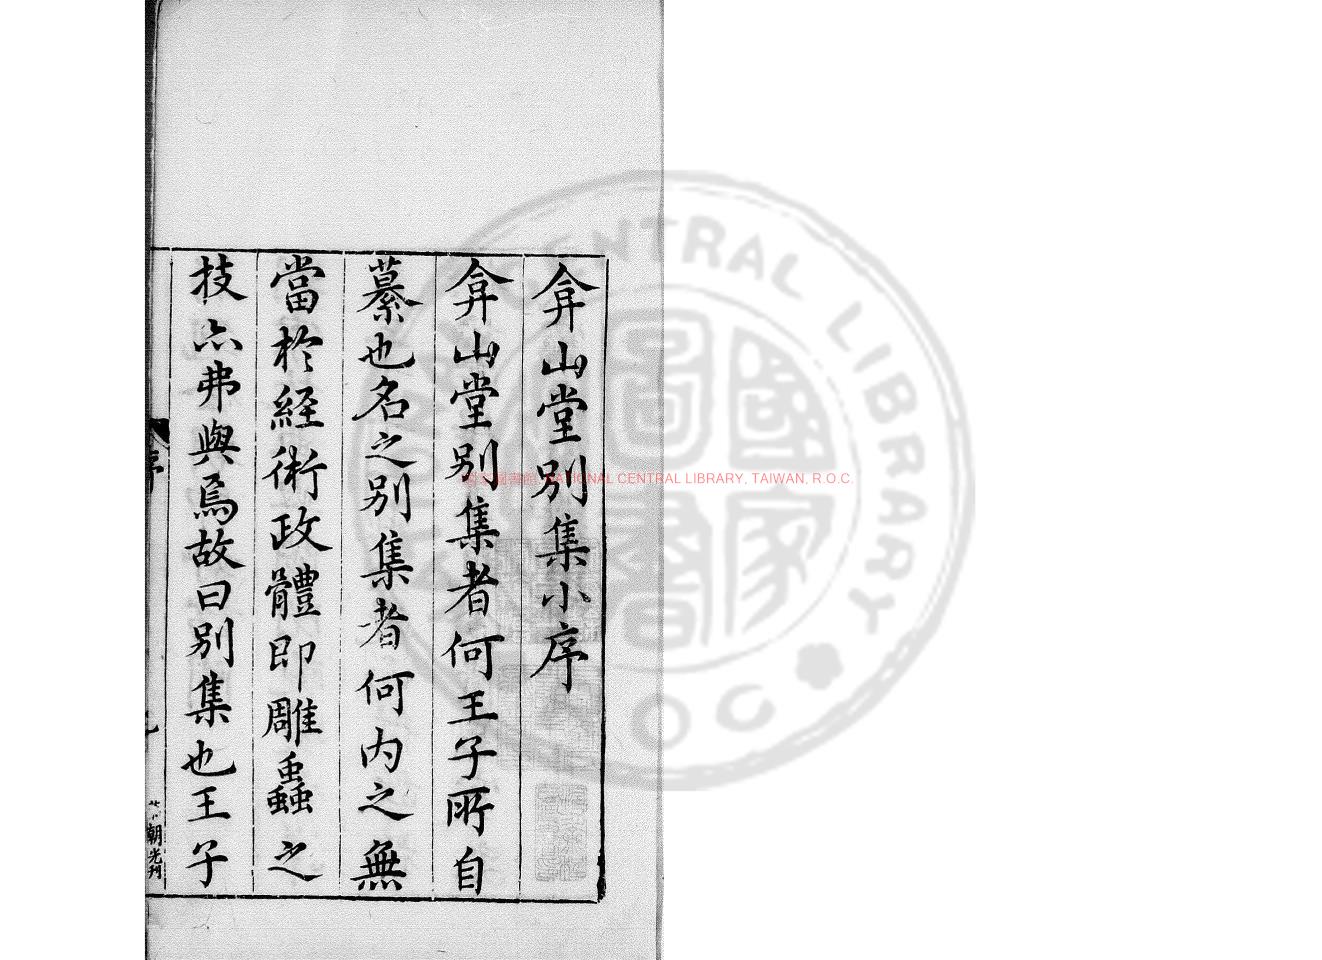 弇山堂別集小序
弇山堂別集者何王子所自
纂也名之別集者何內之無
當於經術政體即雕蟲之
技亦弗與焉故曰別集也王子
序
朝光刊
國家圖書館, NATIONAL CENTRAL LIBRARY, TAIWAN, R.O.C.